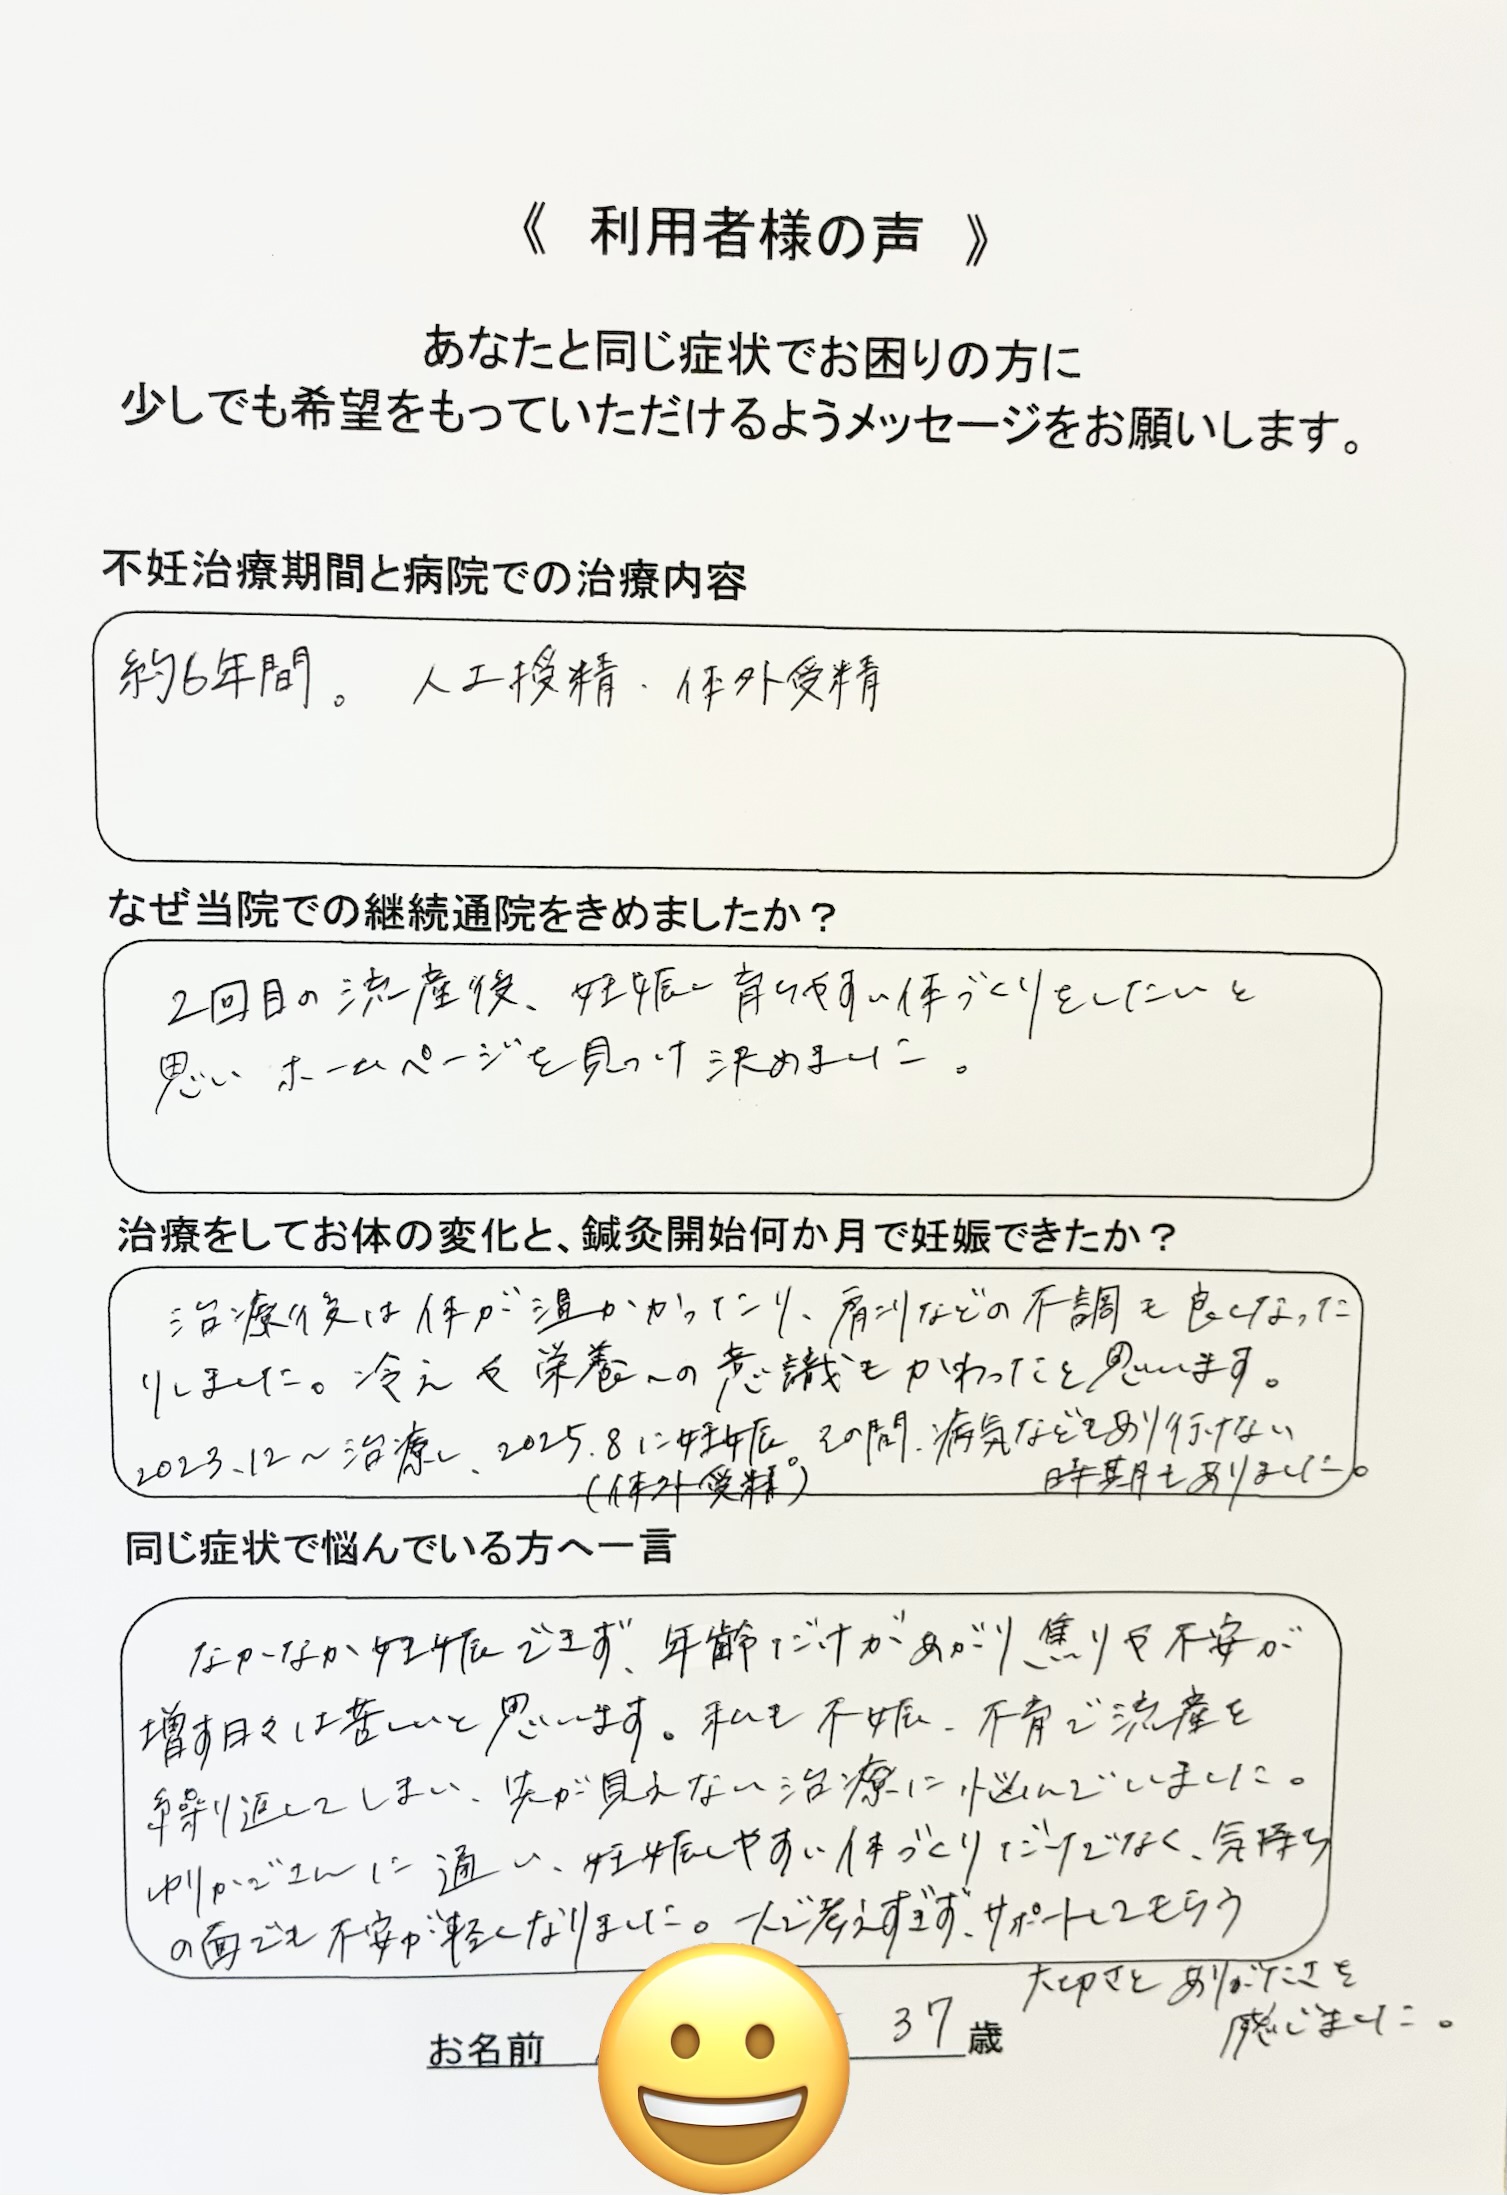 《 利用者様の声 》
あなたと同じ症状でお困りの方に
少しでも希望をもっていただけるようメッセージをお願いします。
不妊治療期間と病院での治療内容
約6年間。 人工授精・体外受精
なぜ当院での継続通院をきめましたか？
2回目の流産後、妊娠し育ちやすい体づくりをしたいと
思いホームページを見つけ決めました。
治療をしてお体の変化と、鍼灸開始何か月で妊娠できたか？
治療後は体が温かかったり、肩こりなどの不調も良くなった
りしました。冷えや栄養への意識もかわったと思います。
2023.12〜治療し、2025.8に妊娠。その間、病気などもあり行けない
(体外受精) 時期もありました。
同じ症状で悩んでいる方へ一言
なかなか妊娠できず、年齢だけがあがり、焦りや不安が
増す日々は苦しいと思います。私も不妊、不育で流産を
繰り返してしまい、先が見えない治療に悩んでいました。
ゆりかごさんに通い、妊娠しやすい体づくりだけでなく、気持ち
の面でも不安が軽くなりました。一人で考えすぎず、サポートしてもらう
大切さとありがたさを
感じました。
お名前 37歳